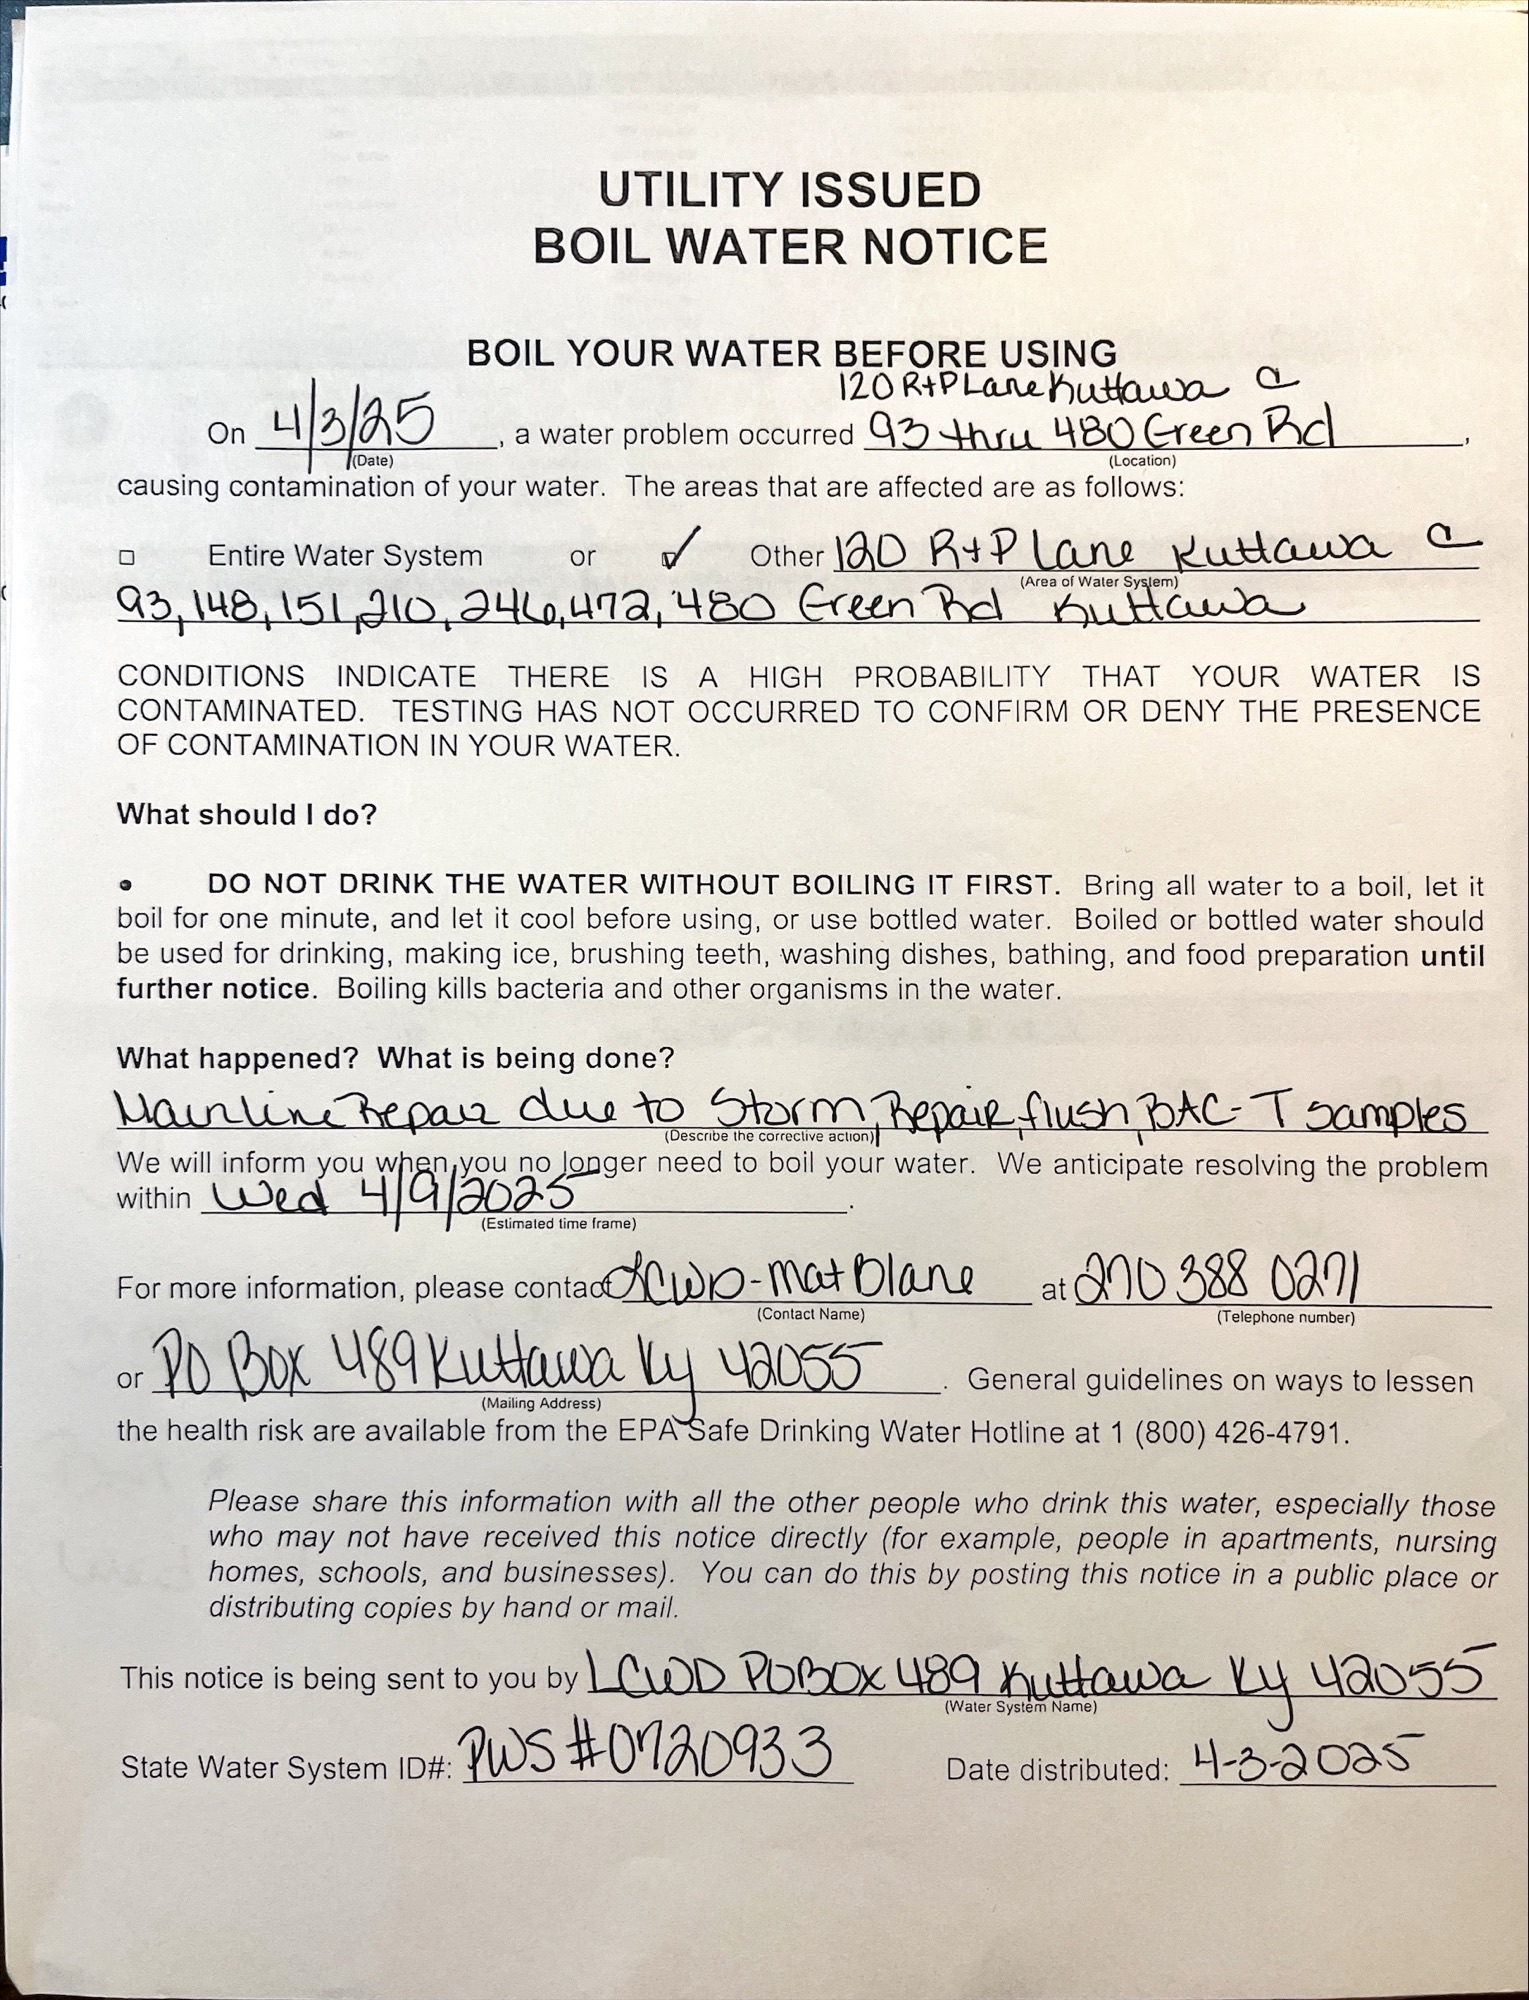 UTILITY ISSUED
BOIL WATER NOTICE
BOIL YOUR WATER BEFORE USING
120 R+P Lane Kuttawa C
On 4/3/25, a water problem occurred 93 thru 480 Green Rd,
(Date) (Location)
causing contamination of your water. The areas that are affected are as follows:
□ Entire Water System or ☑ Other 120 R+P Lane Kuttawa C
(Area of Water System)
93, 148, 151, 210, 246, 472, 480 Green Rd Kuttawa
CONDITIONS INDICATE THERE IS A HIGH PROBABILITY THAT YOUR WATER IS
CONTAMINATED. TESTING HAS NOT OCCURRED TO CONFIRM OR DENY THE PRESENCE
OF CONTAMINATION IN YOUR WATER.
What should I do?
• DO NOT DRINK THE WATER WITHOUT BOILING IT FIRST. Bring all water to a boil, let it
boil for one minute, and let it cool before using, or use bottled water. Boiled or bottled water should
be used for drinking, making ice, brushing teeth, washing dishes, bathing, and food preparation until
further notice. Boiling kills bacteria and other organisms in the water.
What happened? What is being done?
Mainline Repair due to Storm, Repair, flush, BAC-T samples
(Describe the corrective action)
We will inform you when you no longer need to boil your water. We anticipate resolving the problem
within Wed 4/9/2025.
(Estimated time frame)
For more information, please contact LCWD-Mat Blane at 270 388 0271
(Contact Name) (Telephone number)
or PO Box 489 Kuttawa Ky 42055. General guidelines on ways to lessen
(Mailing Address)
the health risk are available from the EPA Safe Drinking Water Hotline at 1 (800) 426-4791.
Please share this information with all the other people who drink this water, especially those
who may not have received this notice directly (for example, people in apartments, nursing
homes, schools, and businesses). You can do this by posting this notice in a public place or
distributing copies by hand or mail.
This notice is being sent to you by LCWD PO BOX 489 Kuttawa Ky 42055
(Water System Name)
State Water System ID#: PWS #0720933 Date distributed: 4-3-2025